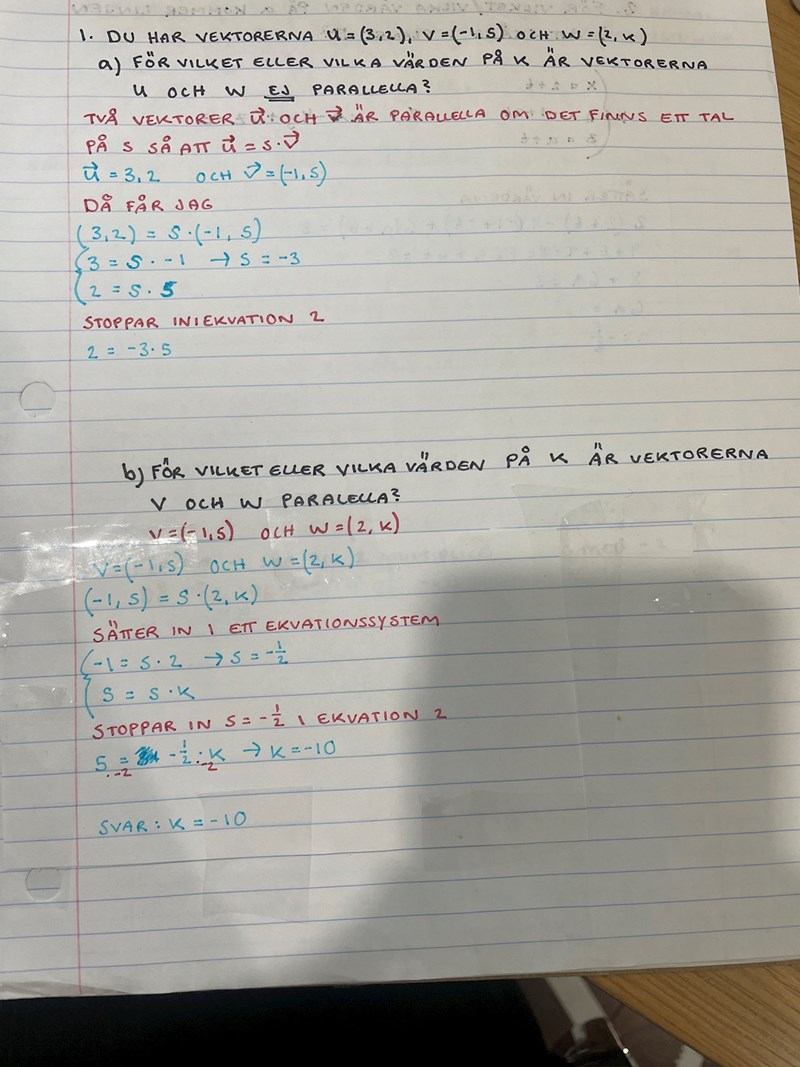 1. DU HAR VEKTORERNA U=(3,2), V=(-1,5) OCH W=(2,K)
a) FÖR VILKET ELLER VILKA VÄRDEN PÅ K ÄR VEKTORERNA
U OCH W EJ PARALLELLA?
TVÅ VEKTORER U⃗ OCH V⃗ ÄR PARALLELLA OM DET FINNS ETT TAL
PÅ S SÅ ATT U⃗ = S·V⃗
U⃗ = 3,2 OCH V⃗ = (-1,5)
DÅ FÅR JAG
(3,2) = S·(-1,5)
3 = S · -1 → S = -3
2 = S · 5
STOPPAR IN I EKVATION 2
2 = -3·5
b) FÖR VILKET ELLER VILKA VÄRDEN PÅ K ÄR VEKTORERNA
V OCH W PARALELLA?
V=(-1,5) OCH W=(2,K)
V=(-1,5) OCH W=(2,K)
(-1,5) = S·(2,K)
SÄTTER IN I ETT EKVATIONSSYSTEM
-1 = S·2 → S = -1/2
5 = S·K
STOPPAR IN S = -1/2 I EKVATION 2
5 = -1/2 · K → K = -10
·-2 ·-2
SVAR: K = -10